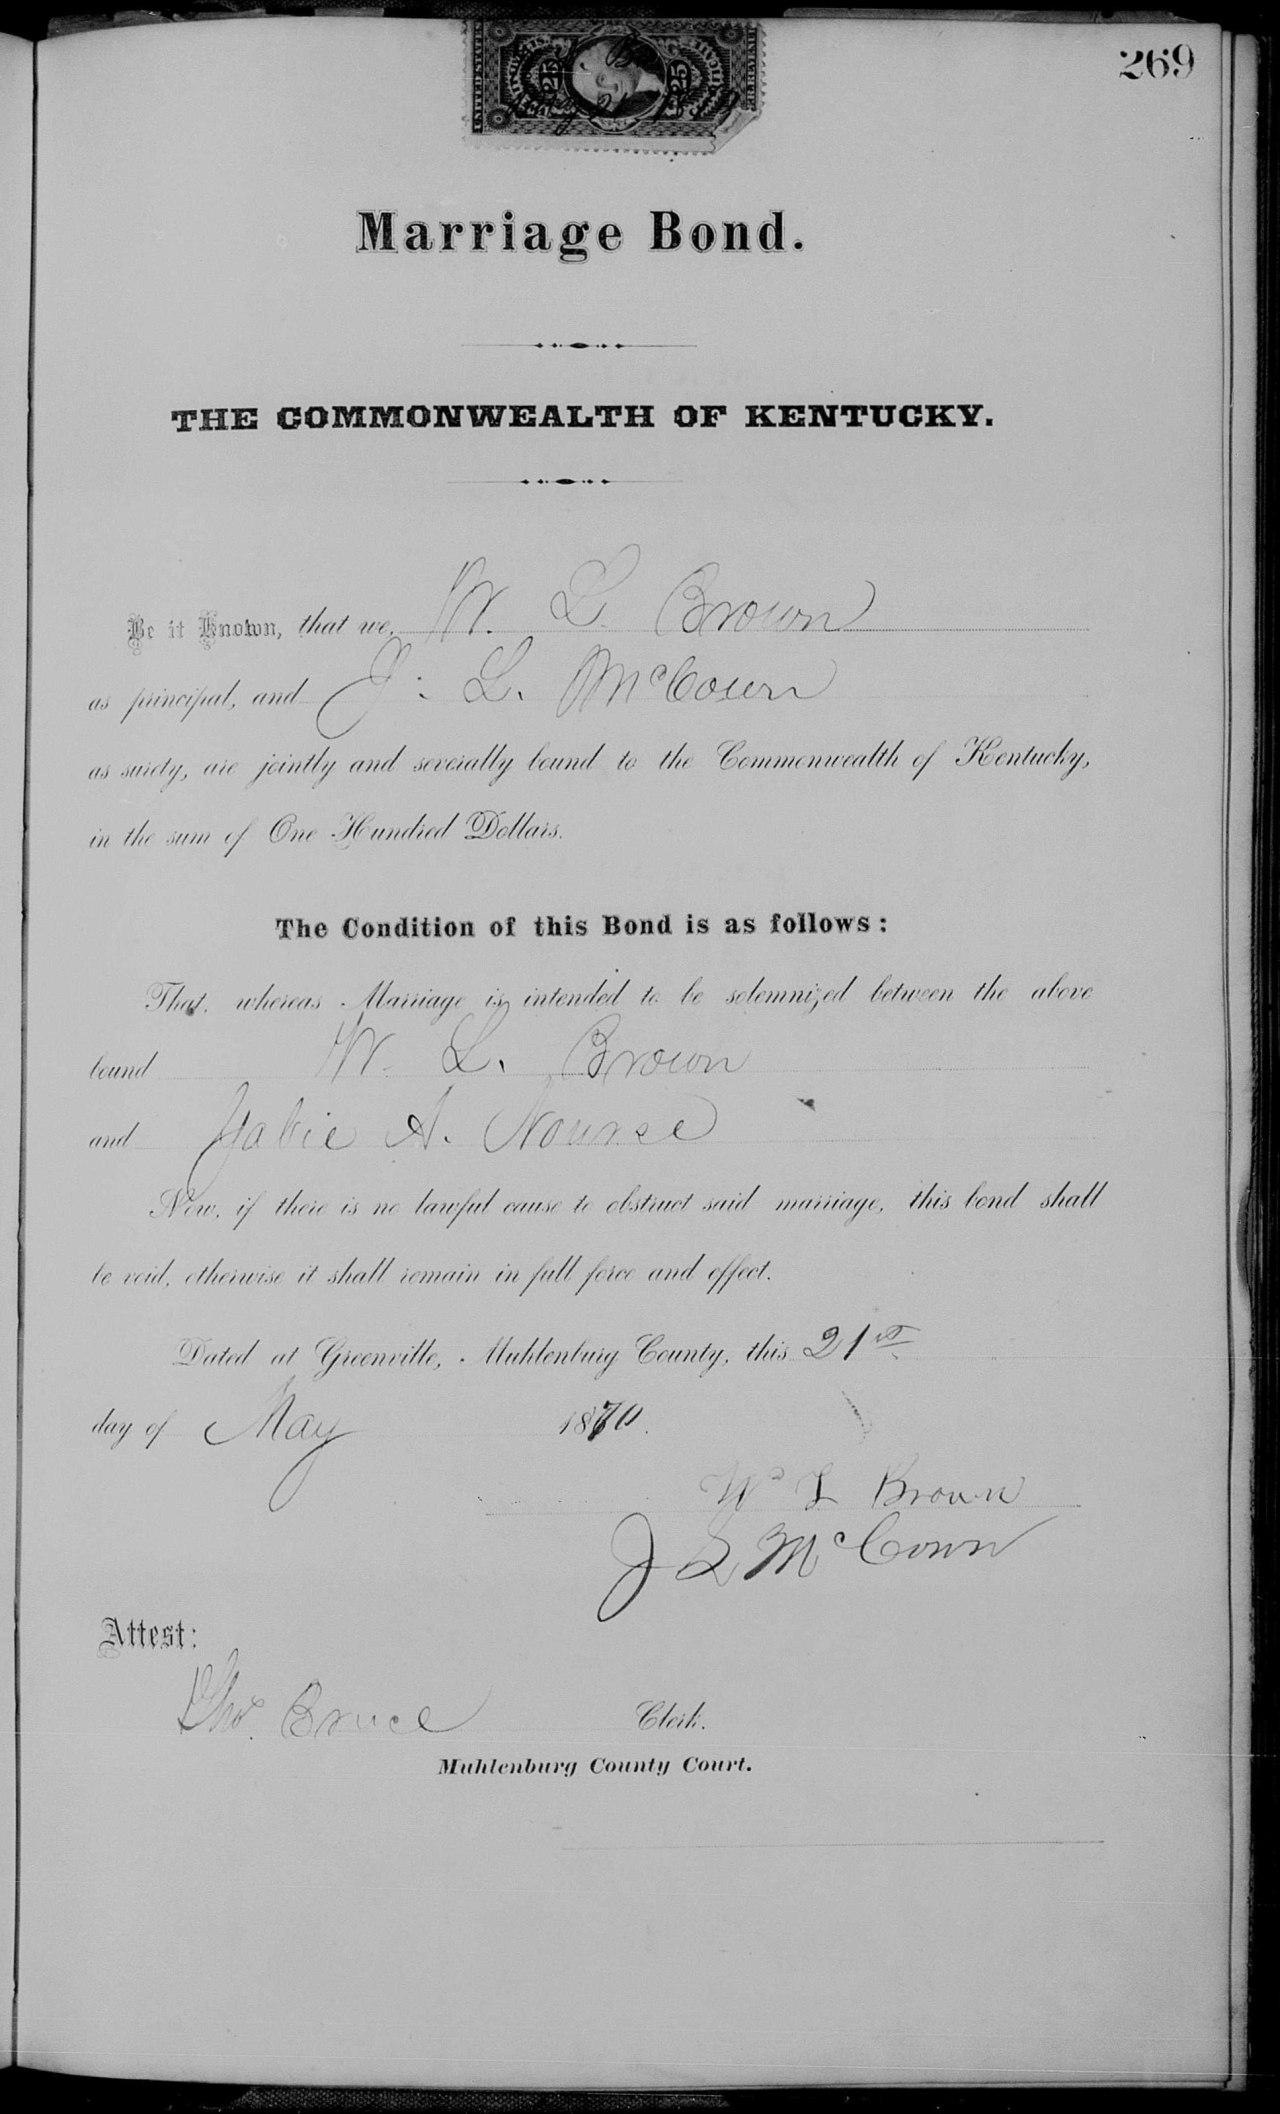 269
UNITED STATES
25 25
May 21 1870
Marriage Bond.
THE COMMONWEALTH OF KENTUCKY.
Be it Known, that we, W. L. Brown
as principal, and J. L. McCown
as surety, are jointly and severally bound to the Commonwealth of Kentucky,
in the sum of One Hundred Dollars.
The Condition of this Bond is as follows:
That, whereas Marriage is intended to be solemnized between the above
bound W. L. Brown
and A. Nourse
Now, if there is no lawful cause to obstruct said marriage, this bond shall
be void, otherwise it shall remain in full force and effect.
Dated at Greenville, Muhlenburg County, this 21st
day of May 1870.
Wm L Brown
J L McCown
Attest:
Tho. Bruce Clerk.
Muhlenburg County Court.